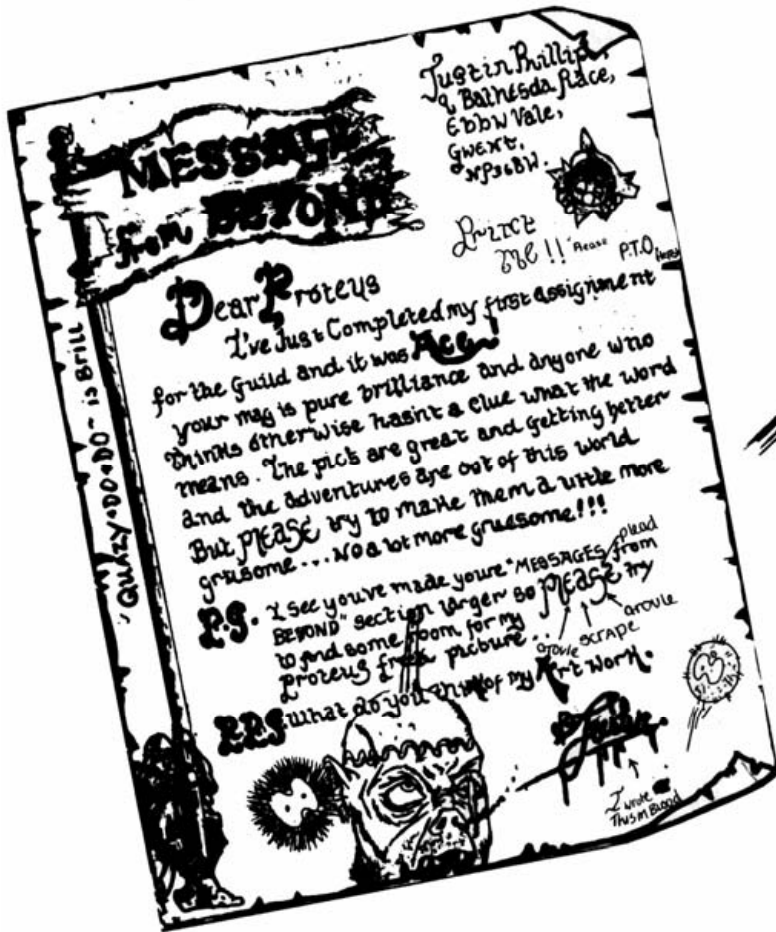 Justin Phillips,
9 Bathesda Place,
Ebbw Vale,
Gwent.
NP3 6BW.
MESSAGE
from BEYOND
PRINT
ME!! Please
P.T.O.
Dear Proteus
I've Just Completed my first assignment
for the guild and it was Ace!
your mag is pure brilliance and anyone who
thinks otherwise hasnt a clue what the word
means. The pics are great and getting better
and the adventures are out of this world
But PLEASE try to make them a little more
gruesome...No a lot more gruesome!!!
P.S. I see you've made youre "MESSAGES from
BEYOND" section larger so PLEASE try
to find some room for my
proteus freak picture...
plead
grovle
scrape
grovle
P.P.S What do you think of my Art Work.
I wrote
This in Blood
QUAZY•DO•DO~ is Brill